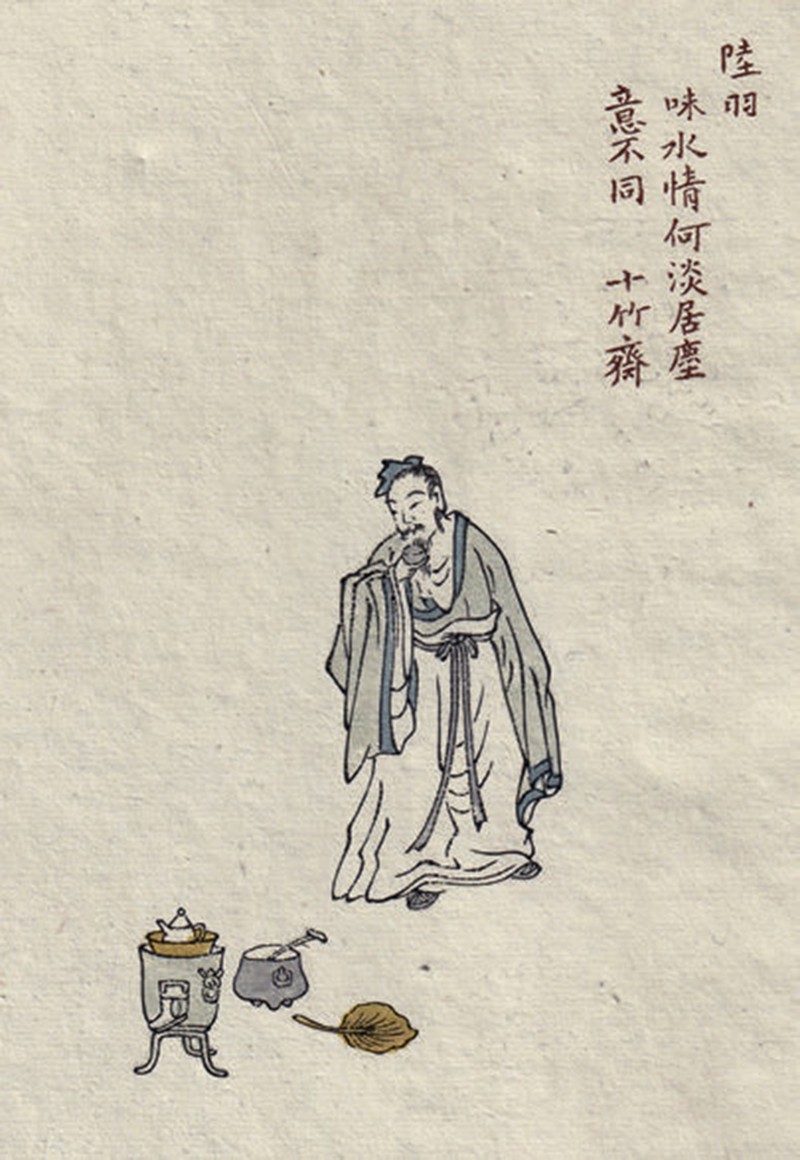 陸羽
味水情何淡居塵
意不同 十竹齋